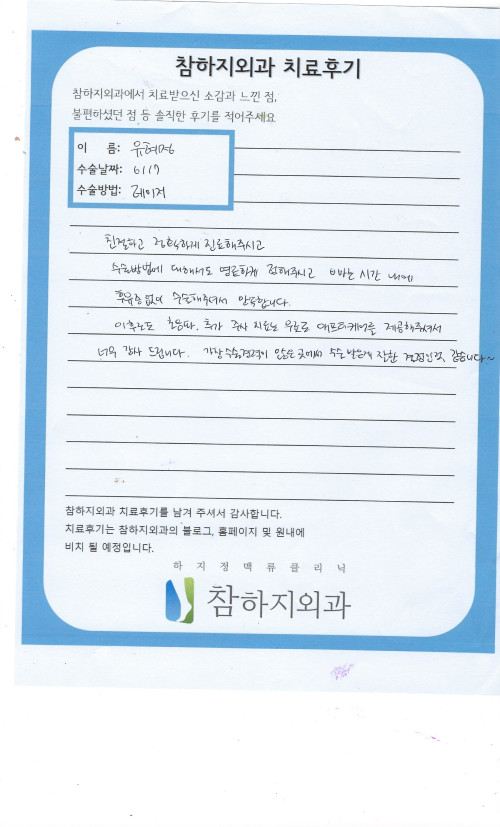 참하지외과 치료후기
참하지외과에서 치료받으신 소감과 느낀 점,
불편하셨던 점 등 솔직한 후기를 적어주세요
이 름: 유혜정
수술날짜: 6/17
수술방법: 레이저
친절하고 정확하게 진료해주시고
수술방법에 대해서도 명료하게 정해주시고 빠른 시간 내에
후유증 없이 수술해주셔서 만족합니다.
이후로도 초음파, 추가 주사 치료도 무료로 애프터케어를 제공해주셔서
너무 감사 드립니다. 가장 수술경력이 많은 곳에서 수술 받은게 잘한 결정인것 같습니다~
참하지외과 치료후기를 남겨 주셔서 감사합니다.
치료후기는 참하지외과의 블로그, 홈페이지 및 원내에
비치 될 예정입니다.
하지정맥류클리닉
참하지외과